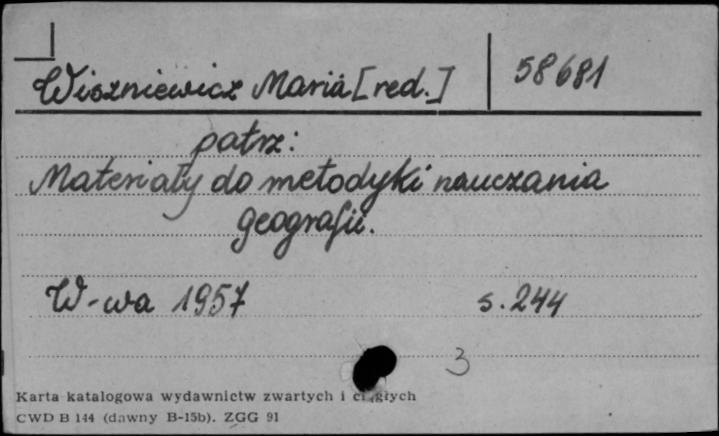 Wiszniewicz Maria [red.] 58681
patrz:
Materiały do metodyki nauczania
geografii.
W-wa 1957 s. 244
3
Karta katalogowa wydawnictw zwartych i ciągłych
CWD B 144 (dawny B-15b). ZGG 91